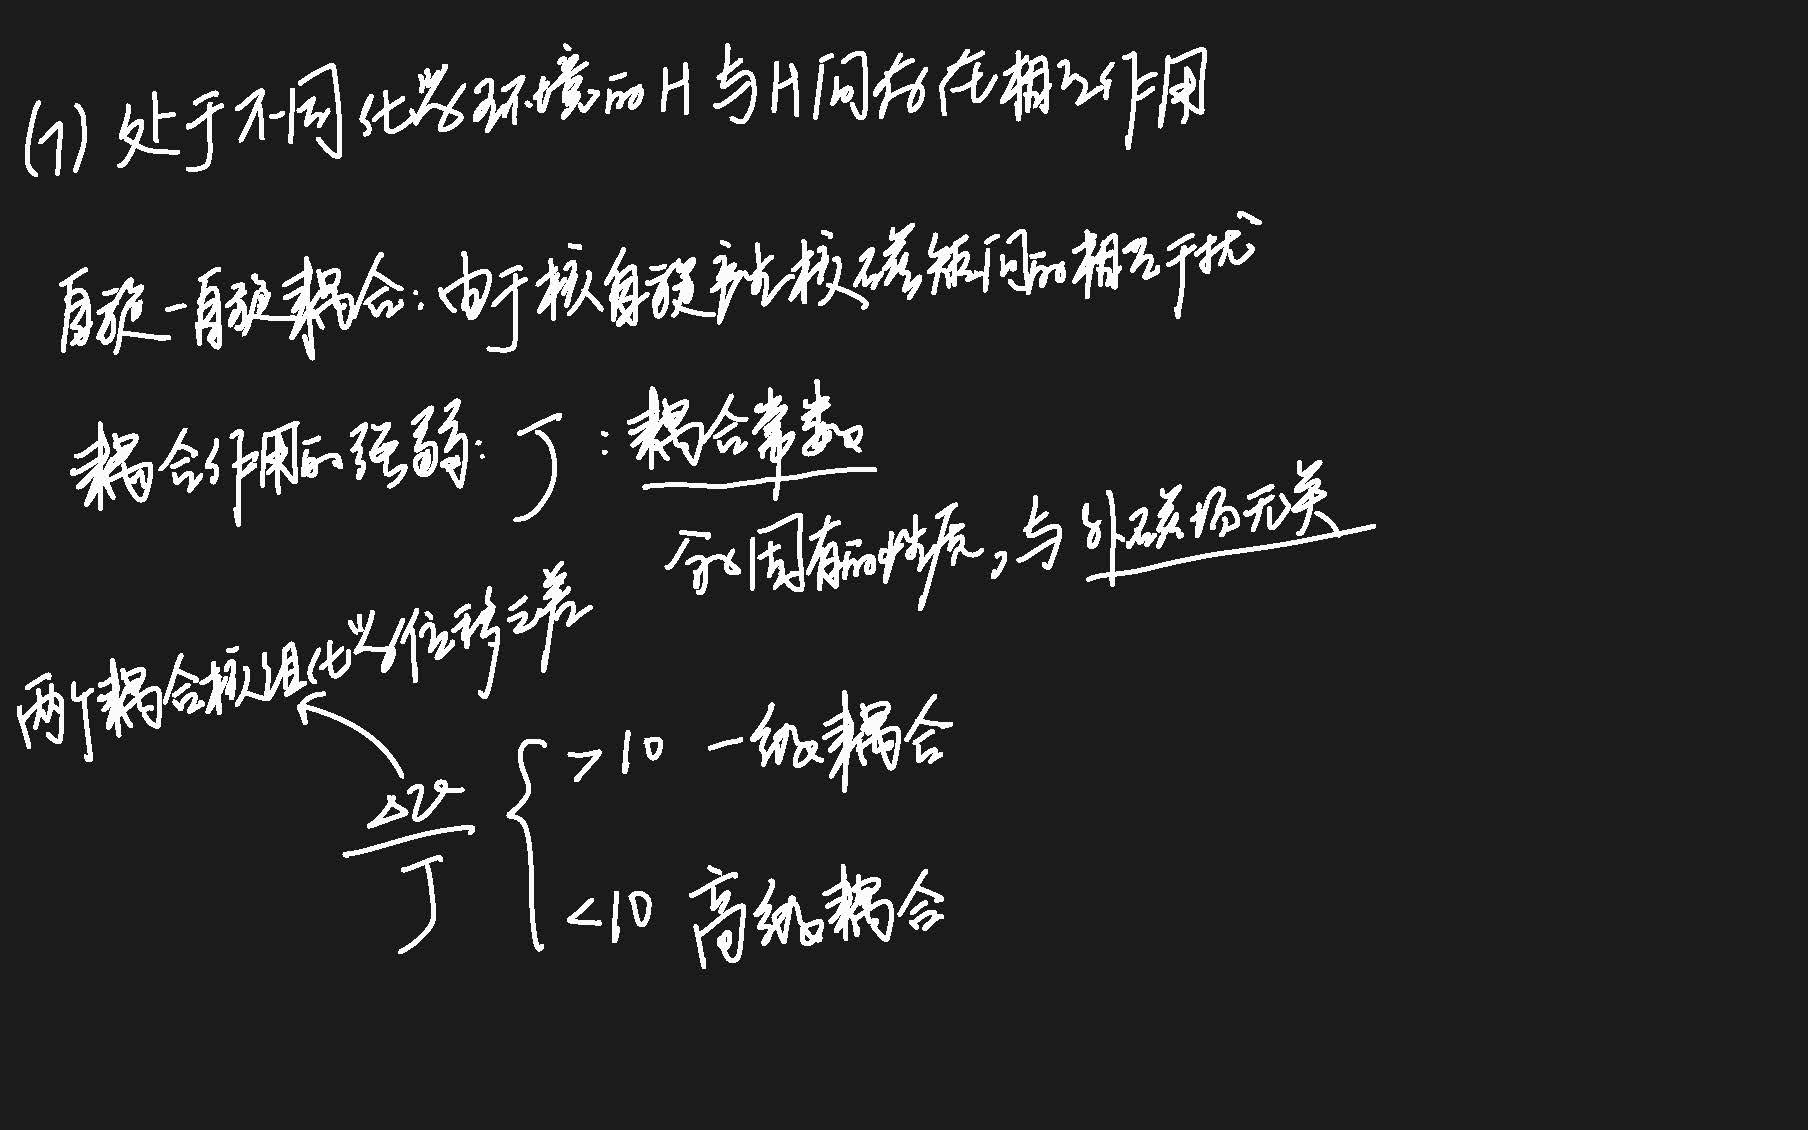 (1) 处于不同化学环境的H与H间存在相互作用
自旋-自旋耦合:由于核自旋产生核磁矩间的相互干扰
耦合作用的强弱: J :耦合常数
分子固有的性质,与外磁场无关
两个耦合核组化学位移之差
Δν/J
>10 一级耦合
<10 高级耦合